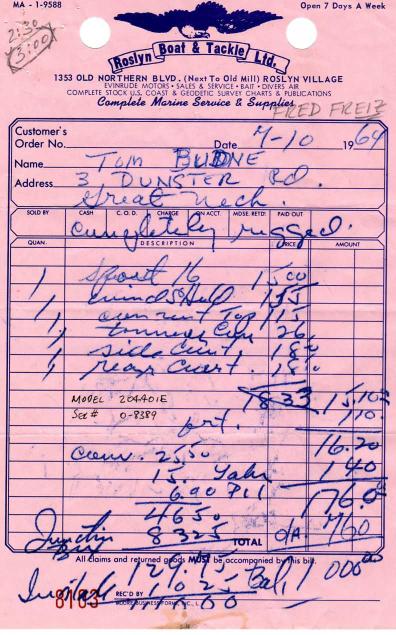 MA - 1-9588
Open 7 Days A Week
2:30
3:00
Roslyn Boat & Tackle Ltd.
1353 OLD NORTHERN BLVD. (Next To Old Mill) ROSLYN VILLAGE
EVINRUDE MOTORS • SALES & SERVICE • BAIT • DIVERS AIR
COMPLETE STOCK U.S. COAST & GEODETIC SURVEY CHARTS & PUBLICATIONS
Complete Marine Service & Supplies
FRED FREIZ
Customer's
Order No. Date 7-10 1969
Name Tom BUDNE
Address 3 DUNSTER Rd.
Great Neck.
SOLD BY CASH C.O.D. CHARGE ON ACCT. MDSE. RETD. PAID OUT
completely rigged.
QUAN. DESCRIPTION PRICE AMOUNT
1 Sport 16 1500
1
1 Top 115
1 26
1 side Curt. 18
1 Curt. 18
1833 1510
MODEL 204401E
Ser # 0-8389
frt. 110
1620
25.50 140
15. 1760
6.00
46.50
Junction Box 83.25 TOTAL 760
All claims and returned goods MUST be accompanied by this bill.
129.75 Bal. 1000
8183 REC'D BY 10.25
MOORE BUSINESS FORMS, INC., L.